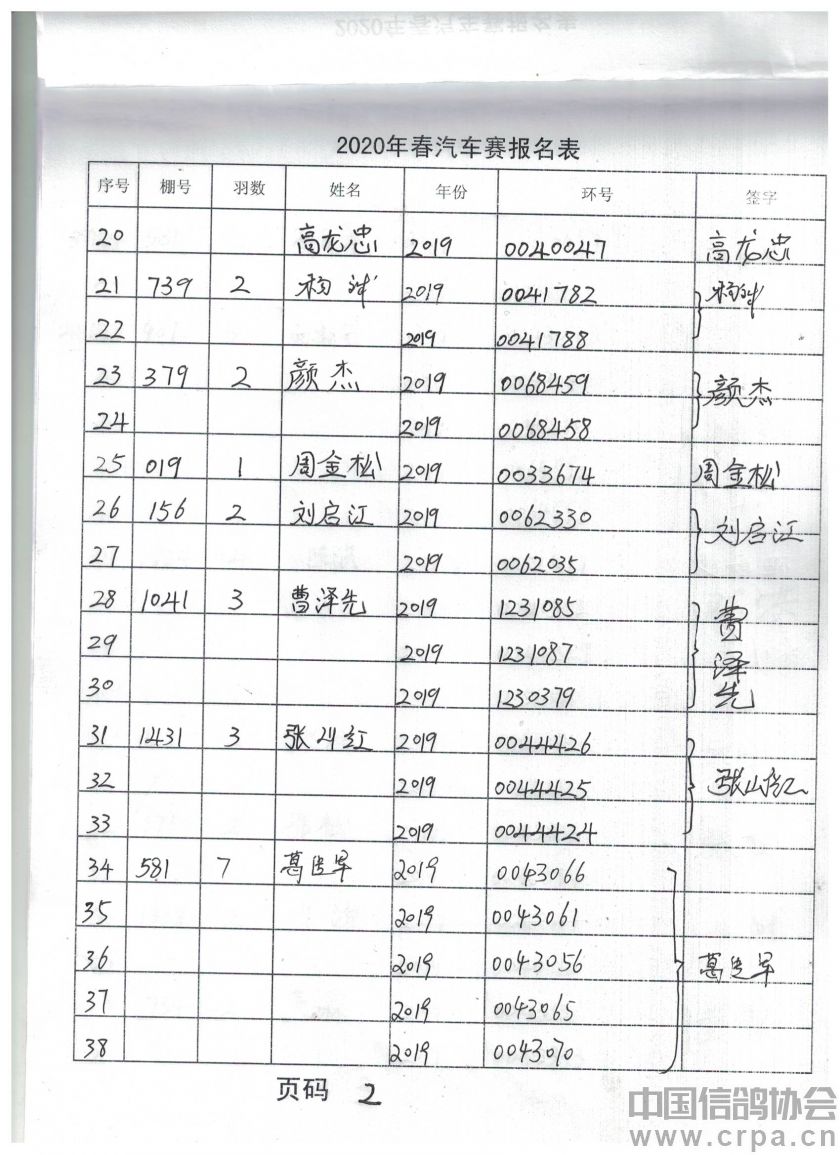 2020年春汽车赛报名表
序号 棚号 羽数 姓名 年份 环号 签字
20 高龙忠 2019 0040047 高龙忠
21 739 2 2019 0041782
22 2019 0041788
23 379 2 颜杰 2019 0068459 颜杰
24 2019 0068458
25 019 1 周金松 2019 0033674 周金松
26 156 2 刘启江 2019 0062330 刘启江
27 2019 0062035
28 1041 3 曹泽先 2019 1231085 曹泽先
29 2019 1231087
30 2019 1230379
31 1431 3 张山红 2019 0044426
32 2019 0044425 张山红
33 2019 0044424
34 581 7 2019 0043066
35 2019 0043061
36 2019 0043056
37 2019 0043065
38 2019 0043070
页码 2
中国信鸽协会
www.crpa.cn